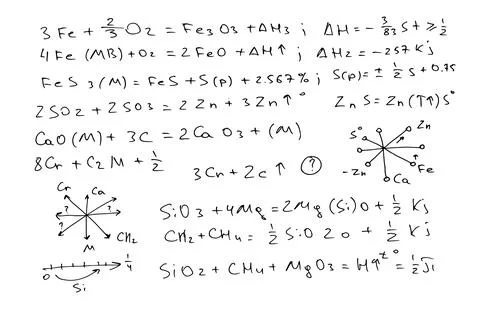 3 Fe + 2/3 O2 = Fe3 O3 + ΔH3 ; ΔH = - 3/83 S t ≥ 1/2
4 Fe (MB) + O2 = 2 FeO + ΔH ↑ ; ΔH2 = - 257 Kj
FeS 3 (M) = FeS + S(p) + 2.567 % ; S(p) = ± 1/2 S + 0.75
2 SO2 + 2 SO3 = 2 Zn + 3 Zn ↑° Zn S = Zn (↑↑) S°
CaO (M) + 3C = 2 Ca O3 + (M)
8 Cr + C2 M + 1/2
3 Cr + 2 c ↑ ?
S° Zn
- Zn Fe
Ca
Cr Ca
? ?
? ?
M CH2
0 1/4
Si
SiO3 + 4 Mg = 2 Mg (Si) O + 1/2 Kj
CH2 + CH4 = 1/2 SiO 2 o + 1/2 Kj
SiO2 + CH4 + MgO3 = H↑ t° = 1/2